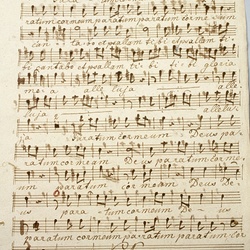 ratum cor meum paratum paratum cor meum
can ta bo et psallam ti bi et psallam ti
bi cantabo et psallam ti bi ti bi gloria
me a alle luja
luja alleluj
paratum cor meum Deus pa
ratum cor meum Deus paratum cor me
um paratum cor meum Deus De
us para tum cor meum De us
paratum cor meum paratum paratum cor